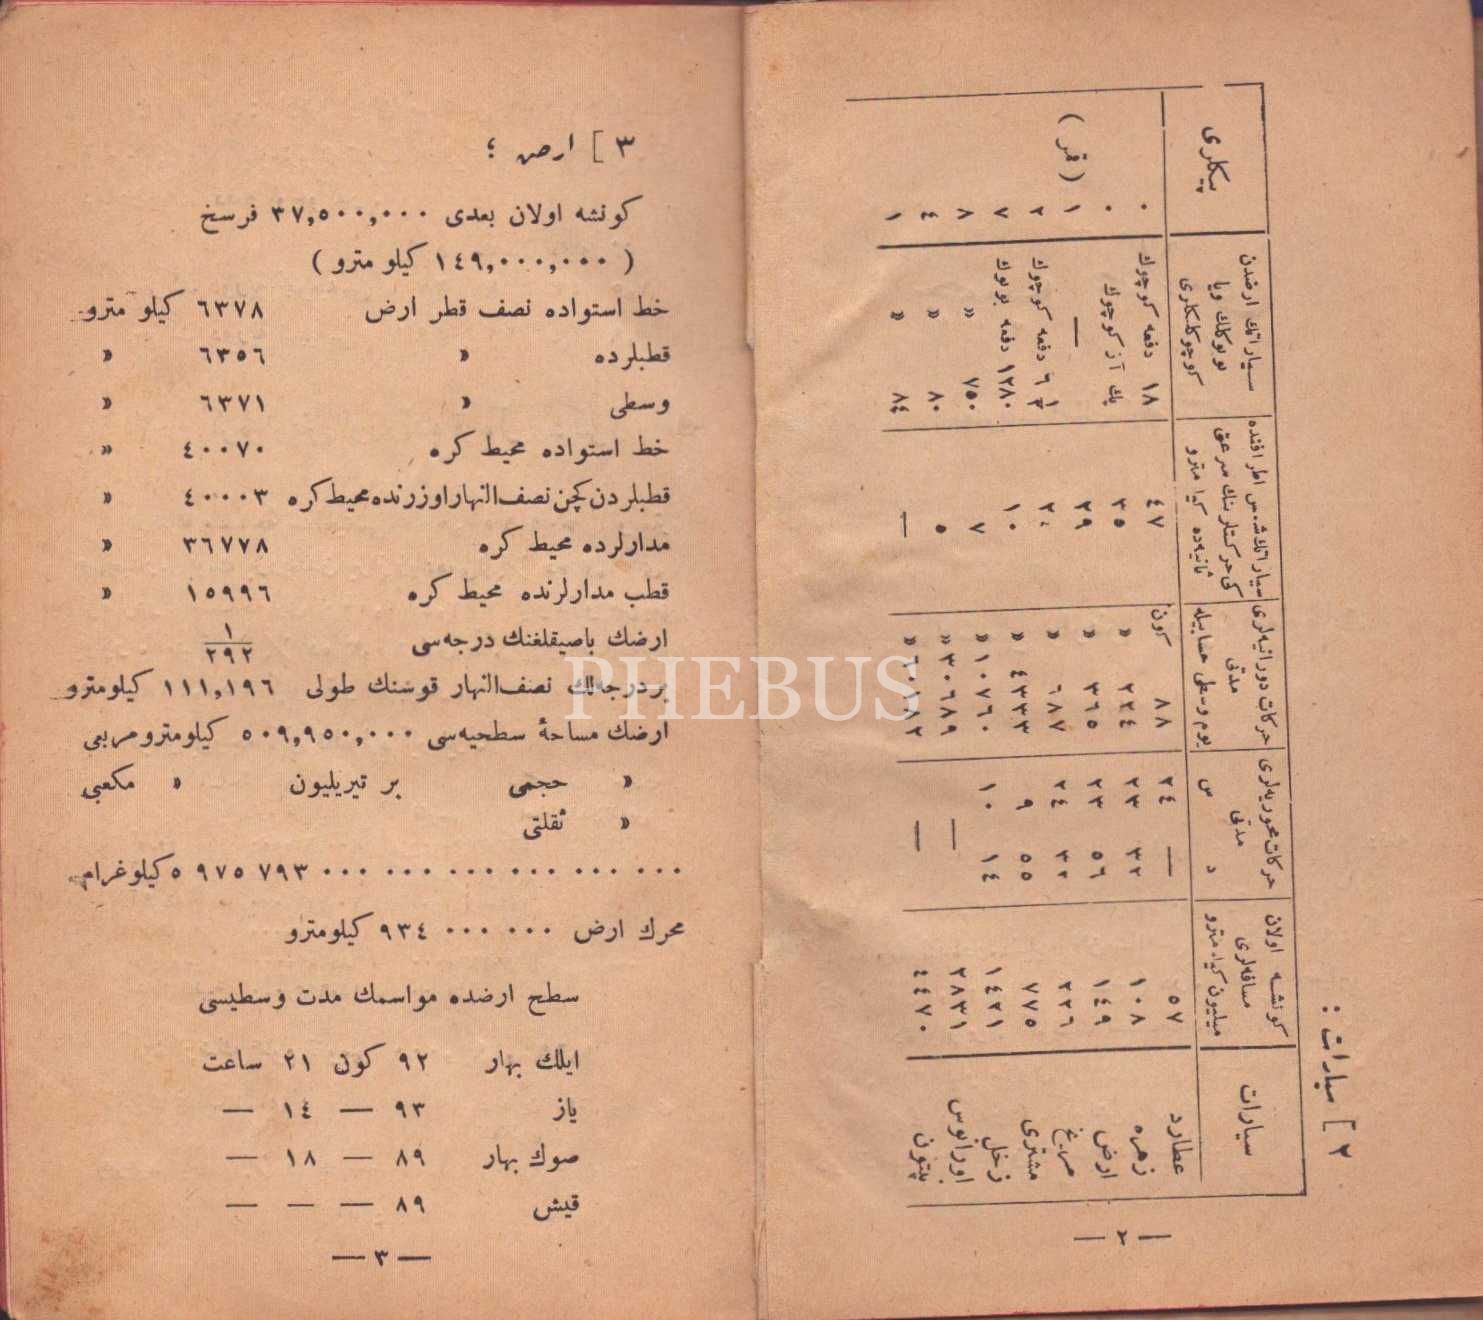 ٢ ] سيارات :
سيارات
كونشه اولان مسافه‌لری ميليون كيلومترو
حركات محوريه‌لری مدتی
س
د
حركات دورانيه‌لری مدتی يوم وسطی حسابيله
سياراتك شمس اطرافنده كی حركتلرينك سرعتی ثانيه‌ده كيلومترو
سياراتك ارضدن بويوكلك ويا كوچوكلكلری
پيكلری
عطارد ٥٧ ٢٤ — ٨٨ كون ٤٧ ١٨ دفعه كوچوك ٠
زهره ١٠٨ ٢٣ ٢٢ ٢٢٤ » ٣٥ پك آز كوچوك ٠
ارض ١٤٩ ٢٣ ٥٦ ٣٦٥ » ٢٩ — ١ ( قمر )
مريخ ٢٢٦ ٢٤ ٣٢ ٦٨٧ » ٢٤ ٦ ١/٣ دفعه كوچوك ٢
مشتری ٧٧٥ ٩ ٥٥ ٤٣٣٣ » ١٠ ١٢٨٠ دفعه بويوك ٧
زحل ١٤٢١ ١٠ ١٤ ١٠٧٦٠ » ٧ ٧٥٠ » ٨
اورانوس ٢٨٣١ — ٣٠٦٨٩ » ٥ ٨٠ » ٤
نپتون ٤٤٧٠ — ٦٠١٨٢ » — ٨٤ » ١
— ٢ —
٣ ] ارض ؛
كونشه اولان بعدی ٣٧,٥٠٠,٠٠٠ فرسخ
( ١٤٩,٠٠٠,٠٠٠ كيلو مترو )
خط استواده نصف قطر ارض ٦٣٧٨ كيلو مترو
قطبلرده » ٦٣٥٦ »
وسطی » ٦٣٧١ »
خط استواده محيط كره ٤٠٠٧٠ »
قطبلردن كچن نصف‌النهار اوزرنده محيط كره ٤٠٠٠٣ »
مدارلرده محيط كره ٣٦٧٧٨ »
قطب مدارلرنده محيط كره ١٥٩٩٦ »
ارضك باصيقلغنك درجه‌سی ١/٢٩٢
بردرجه‌لك نصف‌النهار قوسنك طولی ١١١,١٩٦ كيلومترو
ارضك مساحهٔ سطحيه‌سی ٥٠٩,٩٥٠,٠٠٠ كيلومترو مربعی
» حجمی بر تيريليون » مكعبی
» ثقلتی
٥ ٩٧٥ ٧٩٣ ٠٠٠ ٠٠٠ ٠٠٠ ٠٠٠ ٠٠٠ ٠٠٠ كيلوغرام
محرك ارض ٩٣٤ ٠٠٠ ٠٠٠ كيلومترو
سطح ارضده مواسمك مدت وسطيسی
ايلك بهار ٩٢ كون ٢١ ساعت
ياز ٩٣ — ١٤ —
صوك بهار ٨٩ — ١٨ —
قيش ٨٩ — — —
— ٣ —
PHEBUS